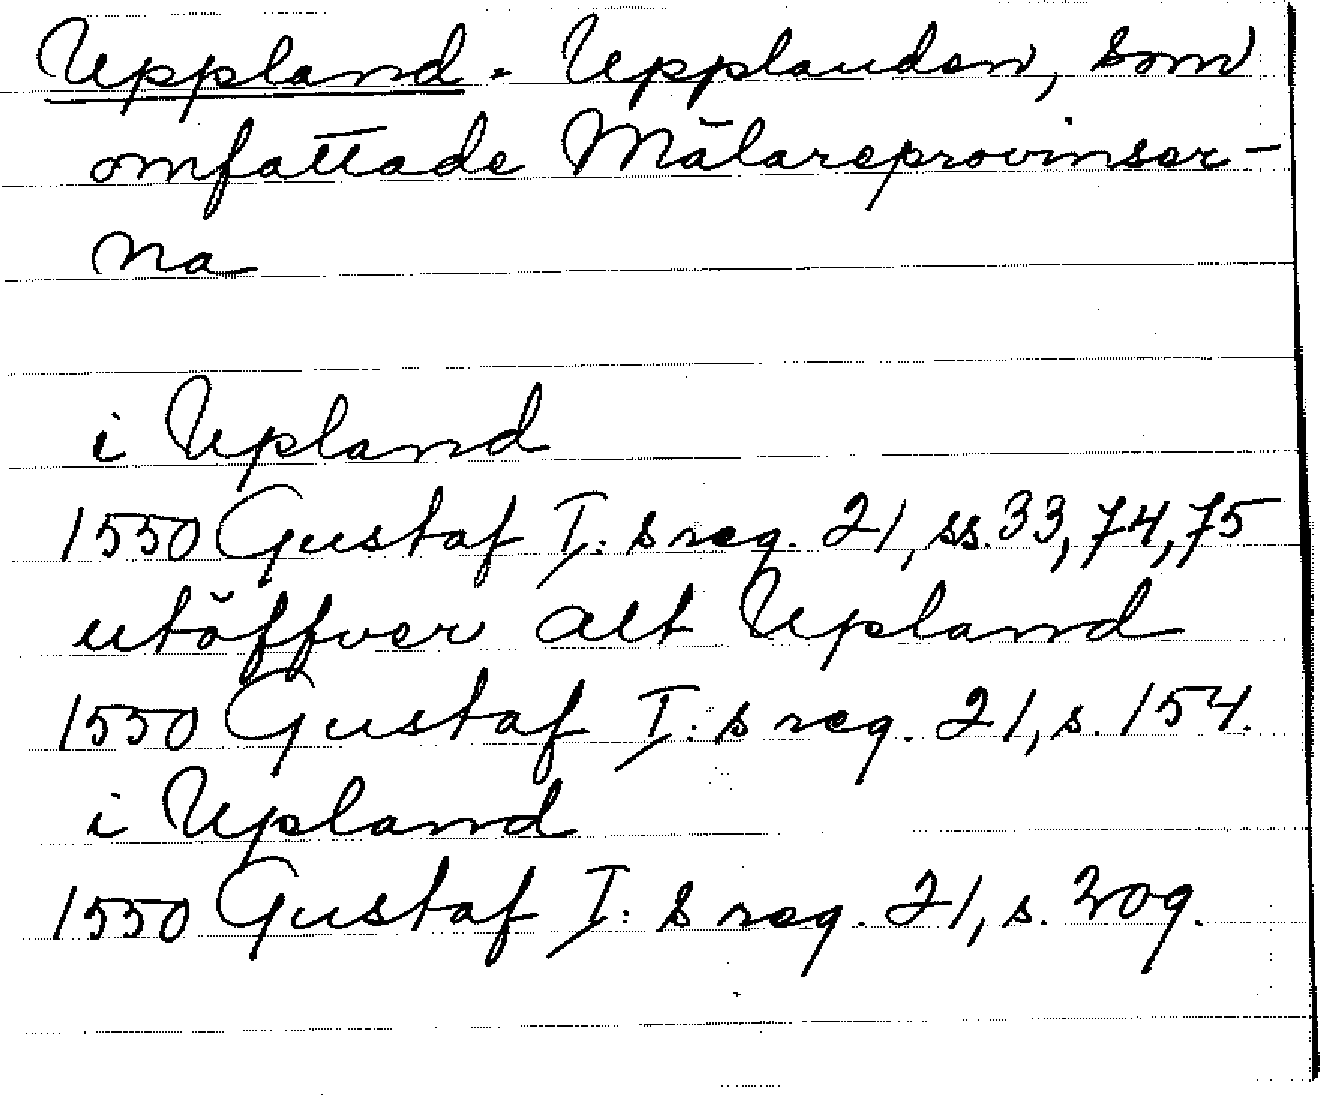 Uppland. Upplanden, som
omfattade Mälareprovinser-
na
i Upland
1550 Gustaf I:s reg. 21, ss. 33, 74, 75
utöffver alt Upland
1550 Gustaf I:s reg. 21, s. 154.
i Upland
1550 Gustaf I:s reg. 21, s. 209.